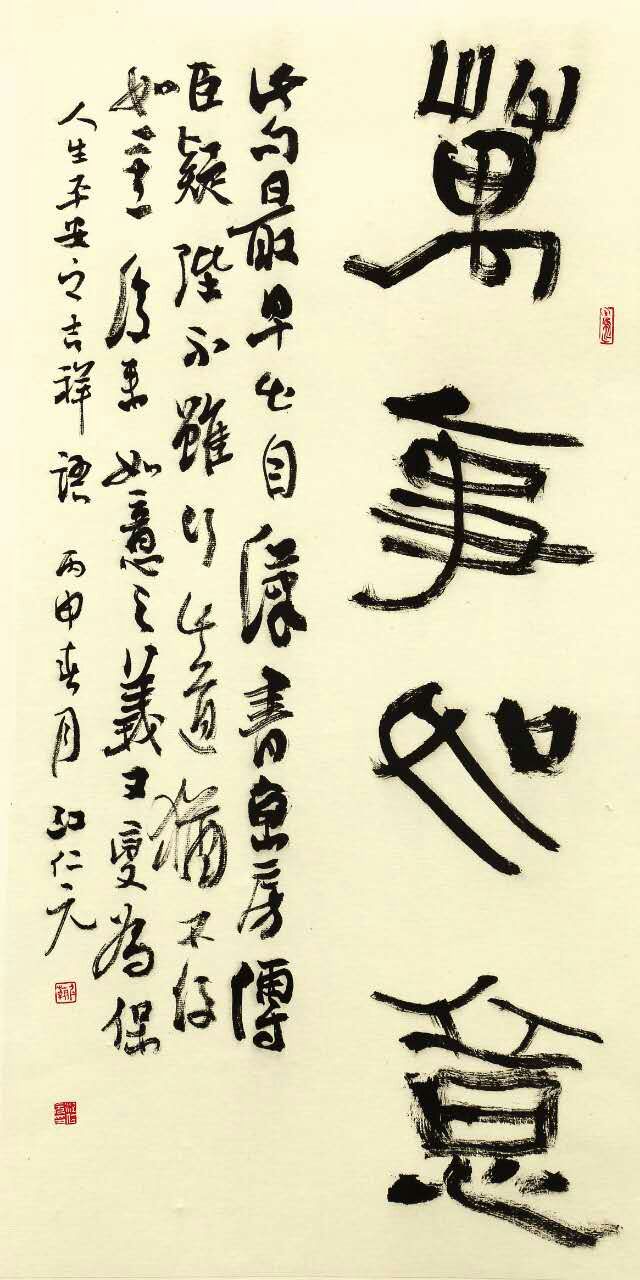 萬事如意
此句最早出自漢書京房傳
臣疑陛下雖行此道猶不得
如意 后來如意之義又變為保
人生平安之吉祥語 丙申春月 江仁元